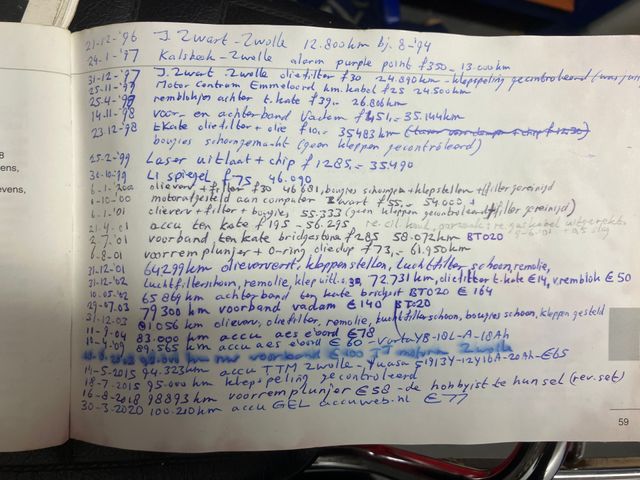 21-12-'96 J. Zwart-Zwolle 12.800km bj. 8-'94
24-1-'97 Kalsbeek-Zwolle alarm purple point f350,- 13.000km
31-12-'97 J. Zwart Zwolle oliefilter f30 24.890km - klepspeling gecontroleerd
25-11-'97 Motor Centrum Emmeloord km. kabel f25 24.500km
25-4-'98 remblokjes achter t. Kate f39,- 26.806km
14-11-'98 voor en achterband Vadam f451,- 35.144km
23-12-'98 t Kate oliefilter + olie f10,- 35483 km
bougies schoongemaakt (geen kleppen gecontroleerd)
25-2-'99 Laser uitlaat + chip f1285,- 35.490
30-10-'99 Li spiegel f75,- 46.090
6-1-'200 olieverv + filter f30 46.681, bougies schoongem + klepstellen + filter gereinigd
1-10-'00 motorafgesteld aan computer Zwart f55,- 54.000
6-1-'01 olieverv + filter + bougies 55.333 (geen kleppen gecontroleerd + filter gereinigd)
21-4-01 accu ten Kate f195 - 56.295
2-7-'01 voorband, ten Kate bridgestone f285 58.072km BT020
6-8-01 voorremplunjer + O-ring oliedop f73,- 61.950km
31-12-01 64299 km olieververst, kleppenstellen, luchtfilter schoon, remolie,
21-12-'02 luchtfilterschoon, remolie, klepuitl. 72.731 km, oliefilter t. Kate €14, v. remblok €50
10-05-'02 65869 km achterband ten Kate bridgst BT020 €164
29-07-03 79300 km voorband vadam €140 BT020
31-12-03 81056 km olieverv, oliefilter, remolie, luchtfilterschoon, bougies schoon, kleppen gesteld
11-9-04 83.000 km accu aes e'oord €78
10-4-'09 89.565 km accu aes e'oord €60 - varta YB-18L-A-18Ah
14-5-2015 94.323km accu TTM Zwolle - yuasa 51913Y-12Y16A-20Ah-€65
18-7-2015 95.000 km klepspeling gecontroleerd
16-8-2018 98893 km voorremplunjer €58 - de hobbyist te hunsel (rev. set)
30-3-2020 100.210km accu GEL accuweb.nl €77
59